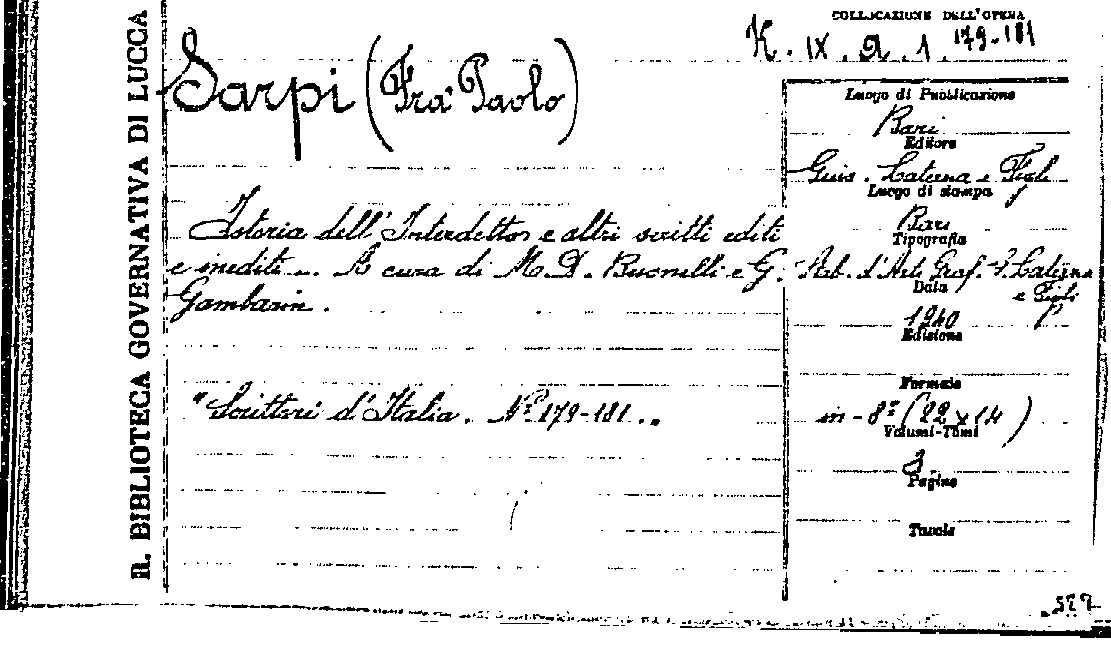 R. BIBLIOTECA GOVERNATIVA DI LUCCA
COLLOCAZIONE DELL'OPERA
K. IX. a. 1. 179-181
Sarpi (Fra Paolo)
Istoria dell'Interdetto e altri scritti editi
e inediti... A cura di M. D. Busnelli e G.
Gambarin.
"Scrittori d'Italia. Nº 179-181.."
Luogo di Pubblicazione
Bari
Editore
Gius. Laterza e Figli
Luogo di stampa
Bari
Tipografia
Stab. d'Arti Graf. G. Laterza
e Figli
Data
1940
Edizione
Formato
in-8º (22 x 14)
Volumi-Tomi
3
Pagine
Tavole